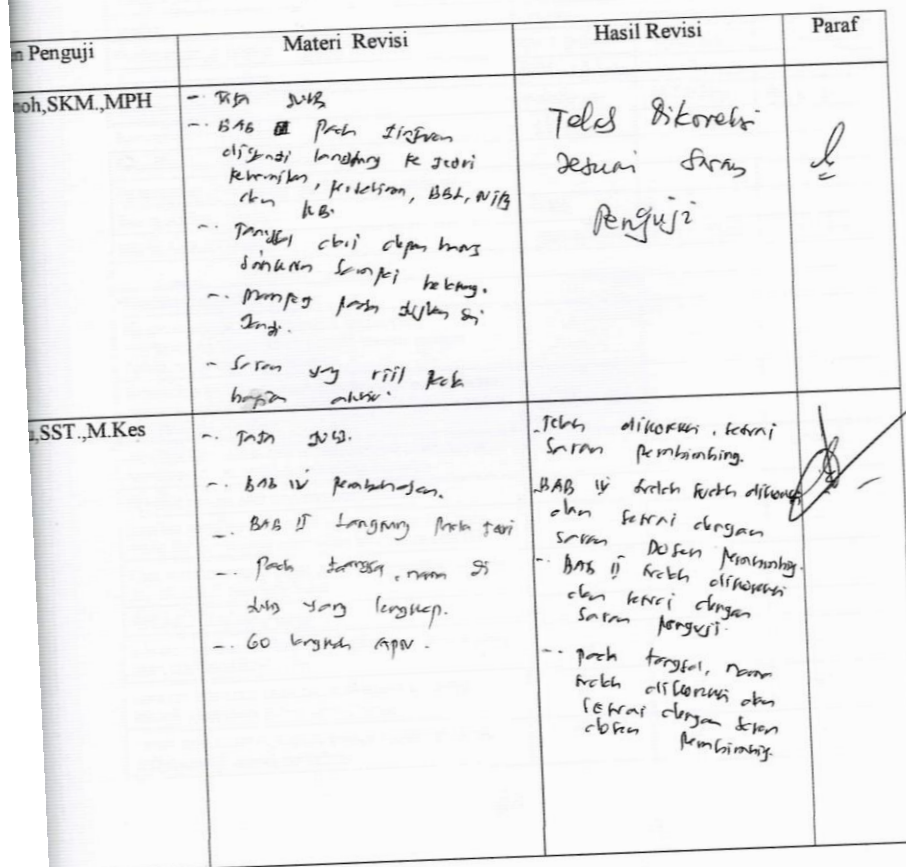 n Penguji
Materi Revisi
Hasil Revisi
Paraf
oh,SKM.,MPH
- Tata tulis
- BAB II pada tinjauan
langsung ke teori
kehamilan, persalinan, BBL, Nifas
dan KB.
- Tanggal dari depan
sampai belakang.
- pada
- Saran yang riil pada
bagian akhir.
Telah Dikoreksi
Sesuai Saran
Penguji
,SST.,M.Kes
- Tata tulis.
- BAB IV pembahasan.
- BAB II langsung pada teori
- Pada tanggal, nama di
tulis yang lengkap.
- 60 langkah APN.
- Telah dikoreksi, sesuai
Saran Pembimbing.
- BAB IV sudah
dan sesuai dengan
Saran Dosen Pembimbing.
- BAB II sudah dikoreksi
dan sesuai dengan
Saran penguji.
- pada tanggal, nama
sudah dikoreksi dan
sesuai dengan saran
dosen Pembimbing.